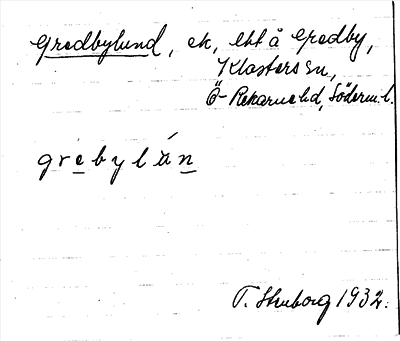 Gredbylund, ek, ktt å Gredby,
Klosters sn,
Ö-Rekarne hd, Söderm. l.
grebylán
T. Stenborg 1932.